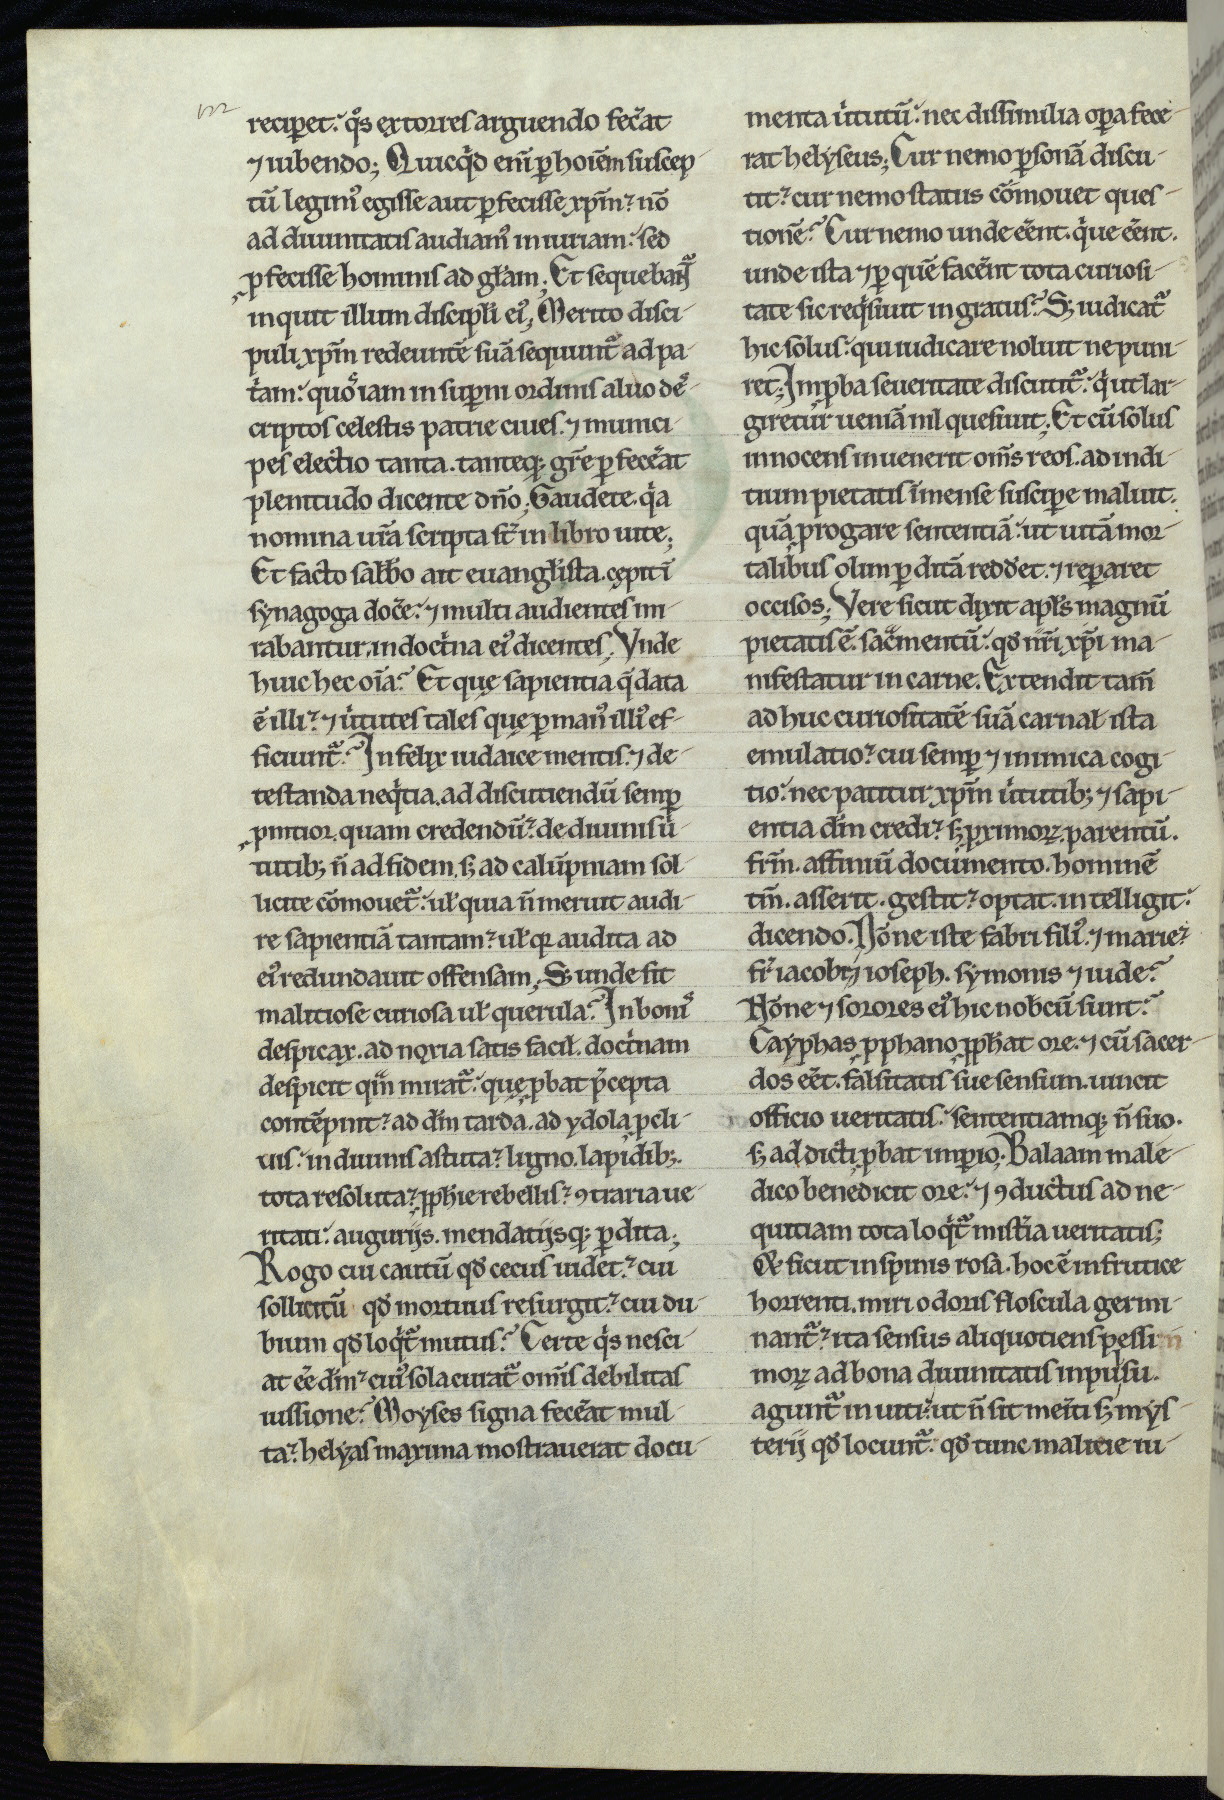 reciperet. qͦs extorres arguendo fec̃at
⁊ iubendo; Quicqͥd eni̅ ꝑ hoie̅m suscep-
tu̅ legimꝰ egisse aut ꝑfecisse xp̅m? no̅
ad diuinitatis audiamꝰ iniuriam: sed
ꝓfecisse hominis ad gl̅am; Et sequebant̃
inquit illum discipl̅i eiꝰ; Merito disci-
puli xp̅m redeunte̅ sua̅ sequunt̃ ad pa-
tͥam: quoͣ iam in superni ordinis aluo deˢ-
criptos celestis patrie ciues. ⁊ munici-
pes electio tanta. tanteqꝫ gr̅e ꝑfecẽat
plenitudo dicente dn̅o; Gaudete. qͥa
nomina ur̅a scripta st̅ in libro uite;
Et facto sabb̅o ait euangl̅ista. cępit i̅
synagoga doce̅: ⁊ multi audientes mi-
rabantur in doctͥna eiꝰ dicentes; Vnde
huic hec oi̅a? Et quę sapientia q̅ data
e̅ illi? ⁊ uͥtutes tales quę ꝑ manꝰ illiꝰ ef-
ficiunt̃? Infelix iudaice mentis. ⁊ de-
testanda neqͥtia. ad discutiendu̅ semꝑ
ꝓnitior. quam credendu̅? de diuinis uͥ-
tutibꝫ n̅ ad fidem. sꝫ ad calu̅pniam sol-
licite co̅mouet̃: ul̅ quia n̅ meruit audi-
re sapientia̅ tantam? ul̅ qꝛ audita ad
eiꝰ redundauit offensam; Sꝫ unde sit
malitiose curiosa ul̅ querula? In boniˢ
despicax. ad noxia satis facil̅. doctͥnam
despicit qm̅ mirat̃: quę ꝓbat p̃cepta
conte̅pnit? ad dm̅ tarda. ad ydola ꝓcli-
uis: in diuinis astuta? ligno. lapidibꝫ.
tota resoluta? ꝓph̅ie rebellis? ꝯtraria ue-
ritati: augurijs. mendatijsqꝫ ꝑdita;
Rogo cui cautu̅ qd̅ cecus uidet? cui
sollicitu̅ qd̅ mortuus resurgit? cui du-
bium qd̅ loqͥt̃ mutus? Certe qͥs nesci-
at ee̅ dm̅? cuiꝰ sola curat̃ om̅s debilitas
iussione? Moyses signa fecẽat mul-
ta? helyas maxima mostrauerat docu-
menta uͥtutu̅: nec dissimilia oꝑa fece-
rat helyseus; Cur nemo ꝑsona̅ discu-
tit? cur nemo status co̅mouet ques-
tione̅? Cur nemo unde ee̅nt. qͥue ee̅nt.
unde ista ⁊ ꝑ que̅ face̅nt tota curiosi-
tate sic reqͥsiuit ingratus? Sꝫ iudicat̃
hic solus: qui iudicare noluit ne puni-
ret; Inꝓba seueritate discutit̃: qͥ ut lar-
giretur uenia̅ nil quesiuit; Et cu̅ solus
innocens inuenerit om̅s reos. ad indi-
tium pietatis i̅mense suscipe maluit.
qua̅ ꝓrogare sententia̅: ut uita̅ mor-
talibus olim ꝑdita̅ redderet. ⁊ repararet
occisos; Vere sicut dixit apl̅s magnu̅
pietatis e̅. sac̃mentu̅: qd̅ nr̅i xp̅i ma-
nifestatur in carne. Extendit tam̅
adhuc curiositate̅ sua̅ carnal̅ ista
emulatio? cui semꝑ ⁊ inimica cogi-
tio: nec patitur xp̅m uͥtutibꝫ ⁊ sapi-
entia dm̅ credi? sꝫ ꝓximoꝝ. parentu̅.
frm̅. affiniu̅ documento. homine̅
tm̅. asserit. gestit? optat. intelligit:
dicendo. No̅ne iste fabri filiꝰ. ⁊ marie?
fr̅ iacobi ⁊ ioseph. symonis ⁊ iude?
No̅ne ⁊ sorores eiꝰ hic nob̅cu̅ sunt?
Cayphas ꝓphano ꝓph̅at ore. ⁊ cu̅ sacer-
dos ee̅t. falsitatis sue sensum. uincit
officio ueritatis: sententiamqꝫ n̅ suo.
sꝫ ad dicti ꝓbat imꝑio; Balaam male-
dico benedicit ore: ⁊ ꝯductus ad ne-
quitiam tota loqͥt̃ mist̃ia ueritatis;
Et sicut in spinis rosa. hoc e̅ in frutice
horrenti. miri odoris floscula germi-
nant̃? ita sensus aliquotiens pessi-
moꝝ ad bona diuinitatis inpulsu.
agunt̃ inuiti: ut n̅ sit meriti sꝫ mys-
terij qd̅ locunt̃: qd̅ tunc malicie iu-